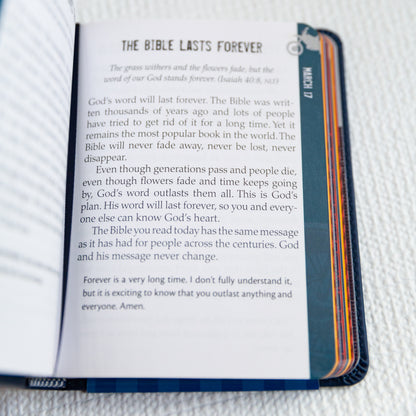 THE BIBLE LASTS FOREVER
MARCH 17
The grass withers and the flowers fade, but the
word of our God stands forever. (Isaiah 40:8, NLT)
God's word will last forever. The Bible was writ-
ten thousands of years ago and lots of people
have tried to get rid of it for a long time. Yet it
remains the most popular book in the world. The
Bible will never fade away, never be lost, never
disappear.
Even though generations pass and people die,
even though flowers fade and time keeps going
by, God's word outlasts them all. This is God's
plan. His word will last forever, so you and every-
one else can know God's heart.
The Bible you read today has the same message
as it has had for people across the centuries. God
and his message never change.
Forever is a very long time. I don't fully understand it,
but it is exciting to know that you outlast anything and
everyone. Amen.